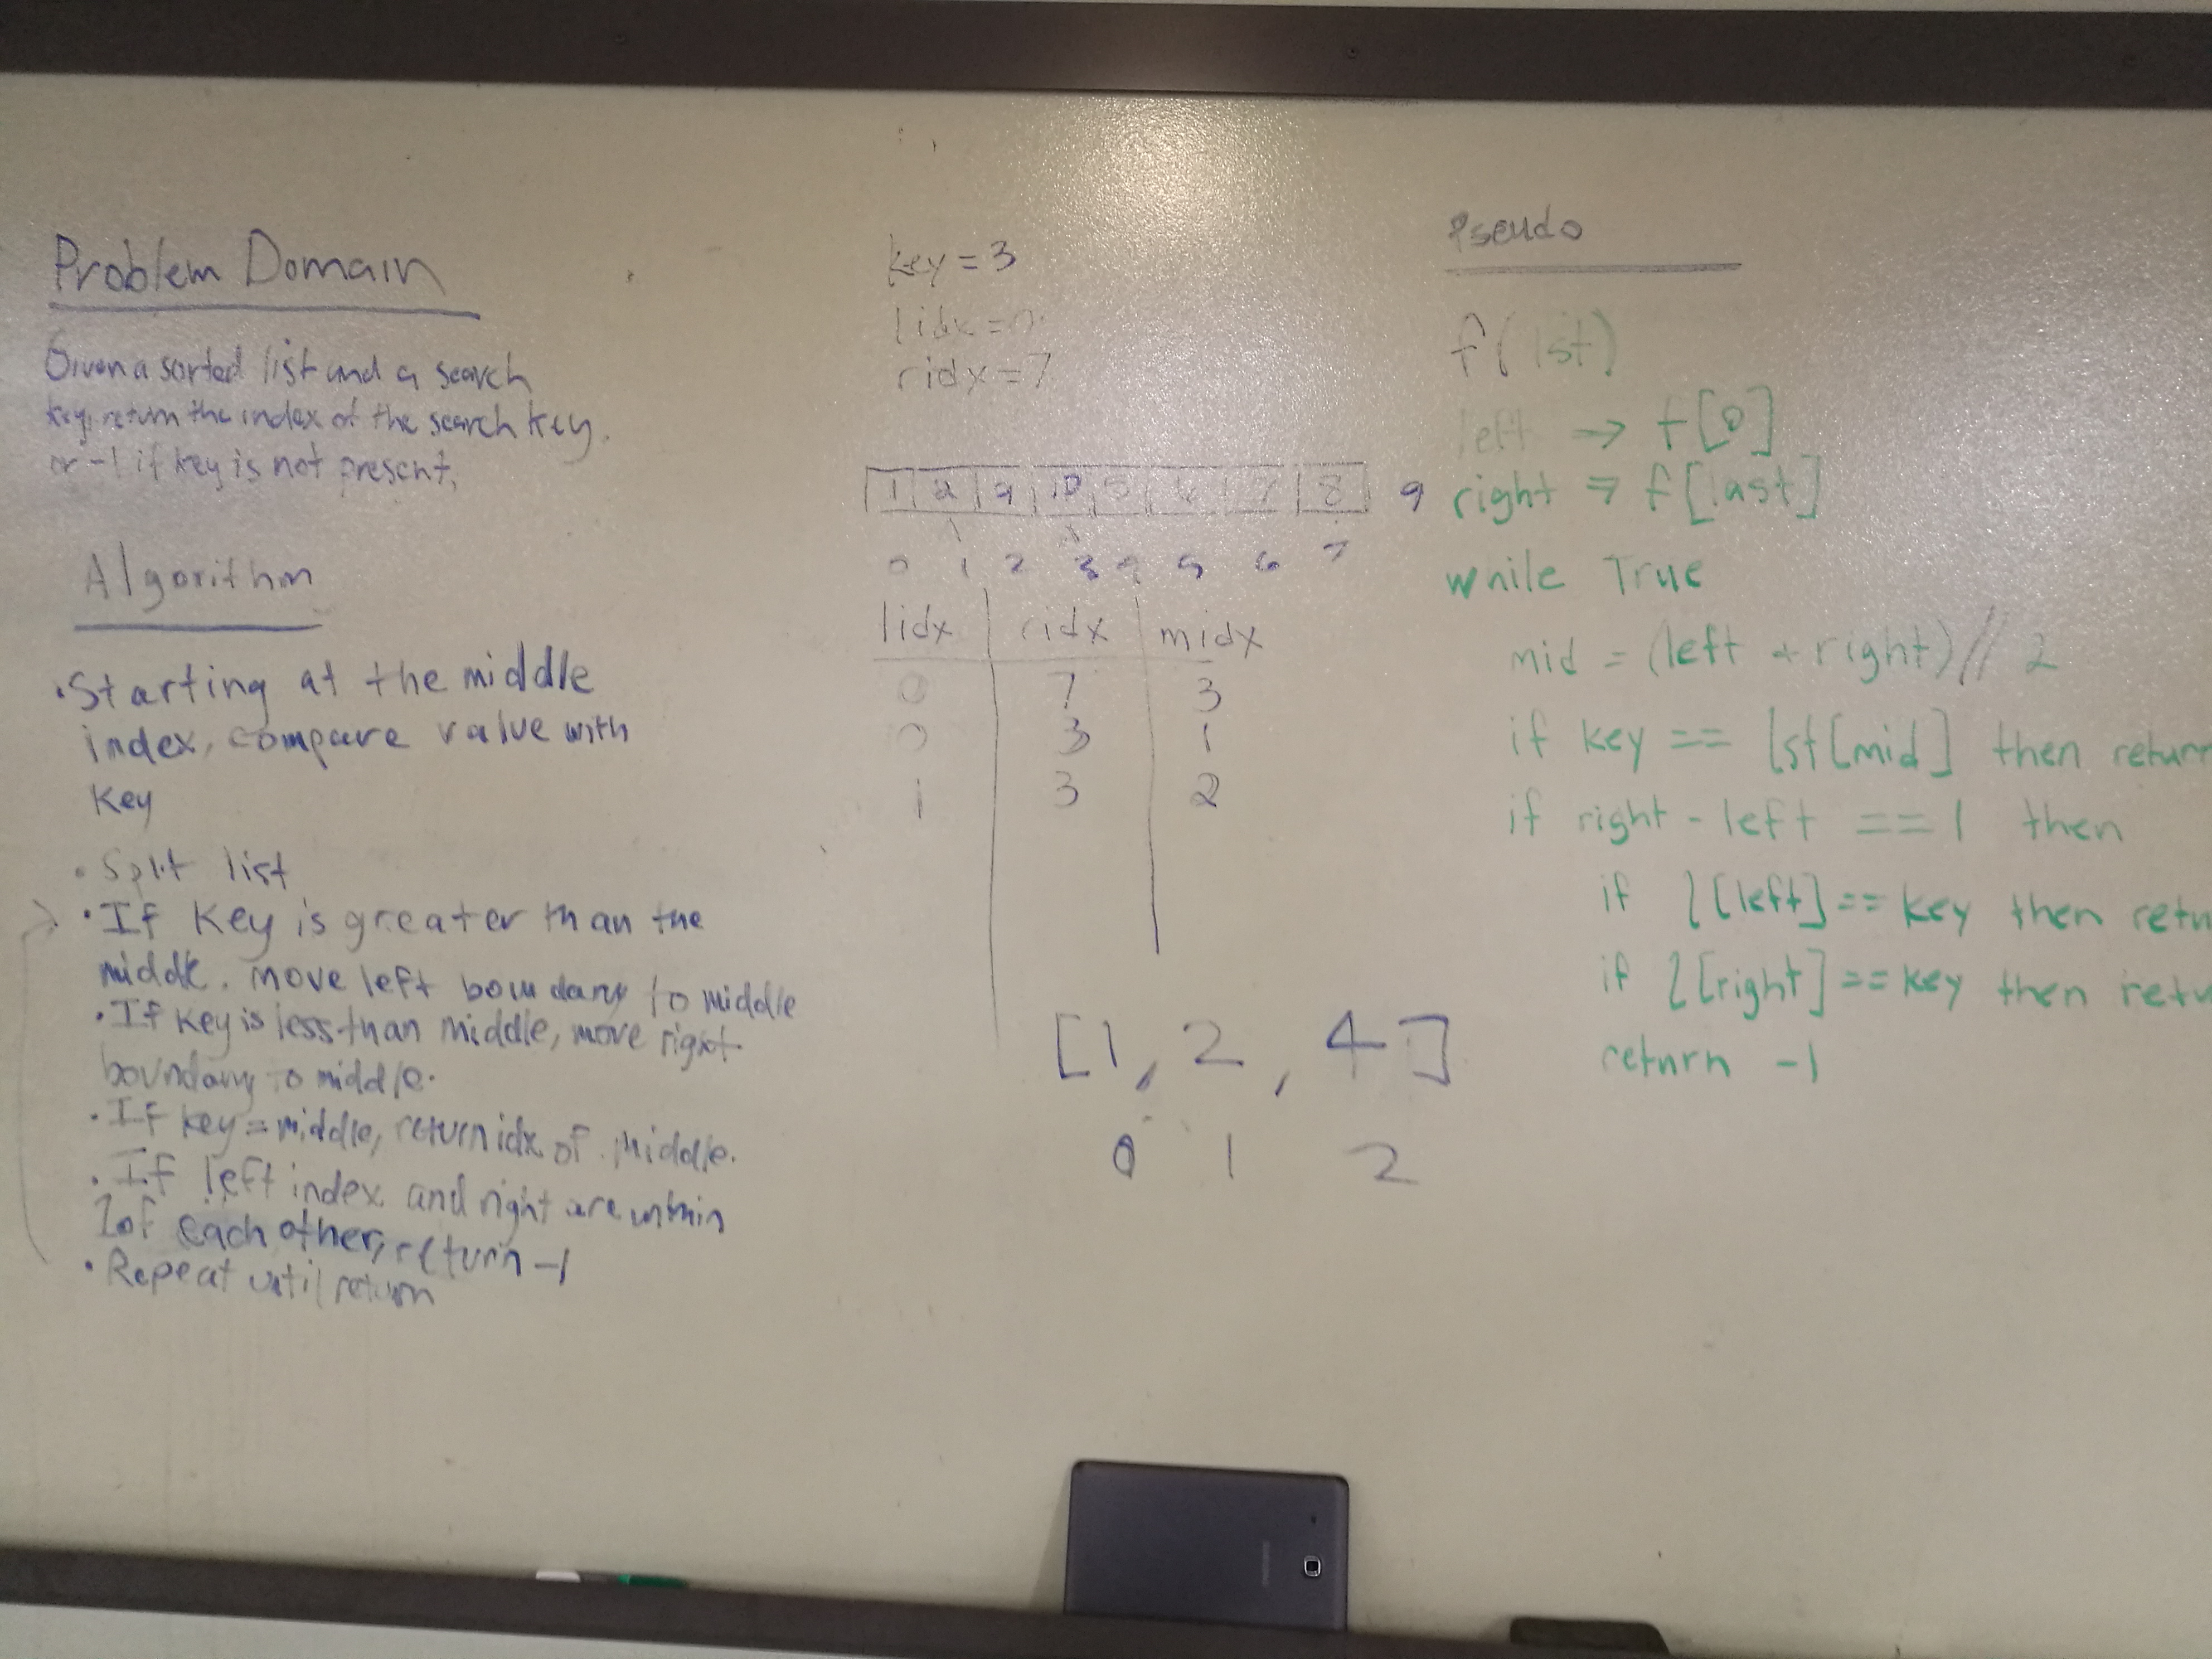 Problem Domain
Given a sorted list and a search
key, return the index of the search key.
or -1 if key is not present.
Algorithm
• Starting at the middle
index, compare value with
Key
• Split list
• If Key is greater than the
middle, move left boundary to middle
• If key is less than middle, move right
boundary to middle.
• If key = middle, return idx of middle.
• If left index and right are within
1 of each other, return -1
• Repeat until return
key = 3
lidx = 0
ridx = 7
1 2 10 6 7 8 9
0 1 2 3 4 5 6 7
lidx ridx midx
0 7 3
0 3 1
1 3 2
[1, 2, 4]
0 1 2
Pseudo
f(lst)
left → f[0]
right → f[last]
while True
mid = (left + right) // 2
if key == lst[mid] then return
if right - left == 1 then
if l[left] == key then retu
if l[right] == key then retu
return -1